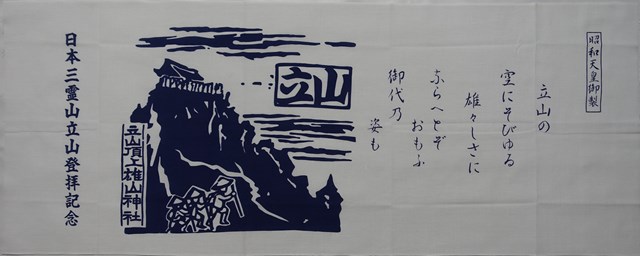 昭和天皇御製
立山の
空にそびゆる
雄々しさに
ならへとぞ
おもふ
御代乃
姿も
立山
立山頂上雄山神社
日本三霊山立山登拝記念